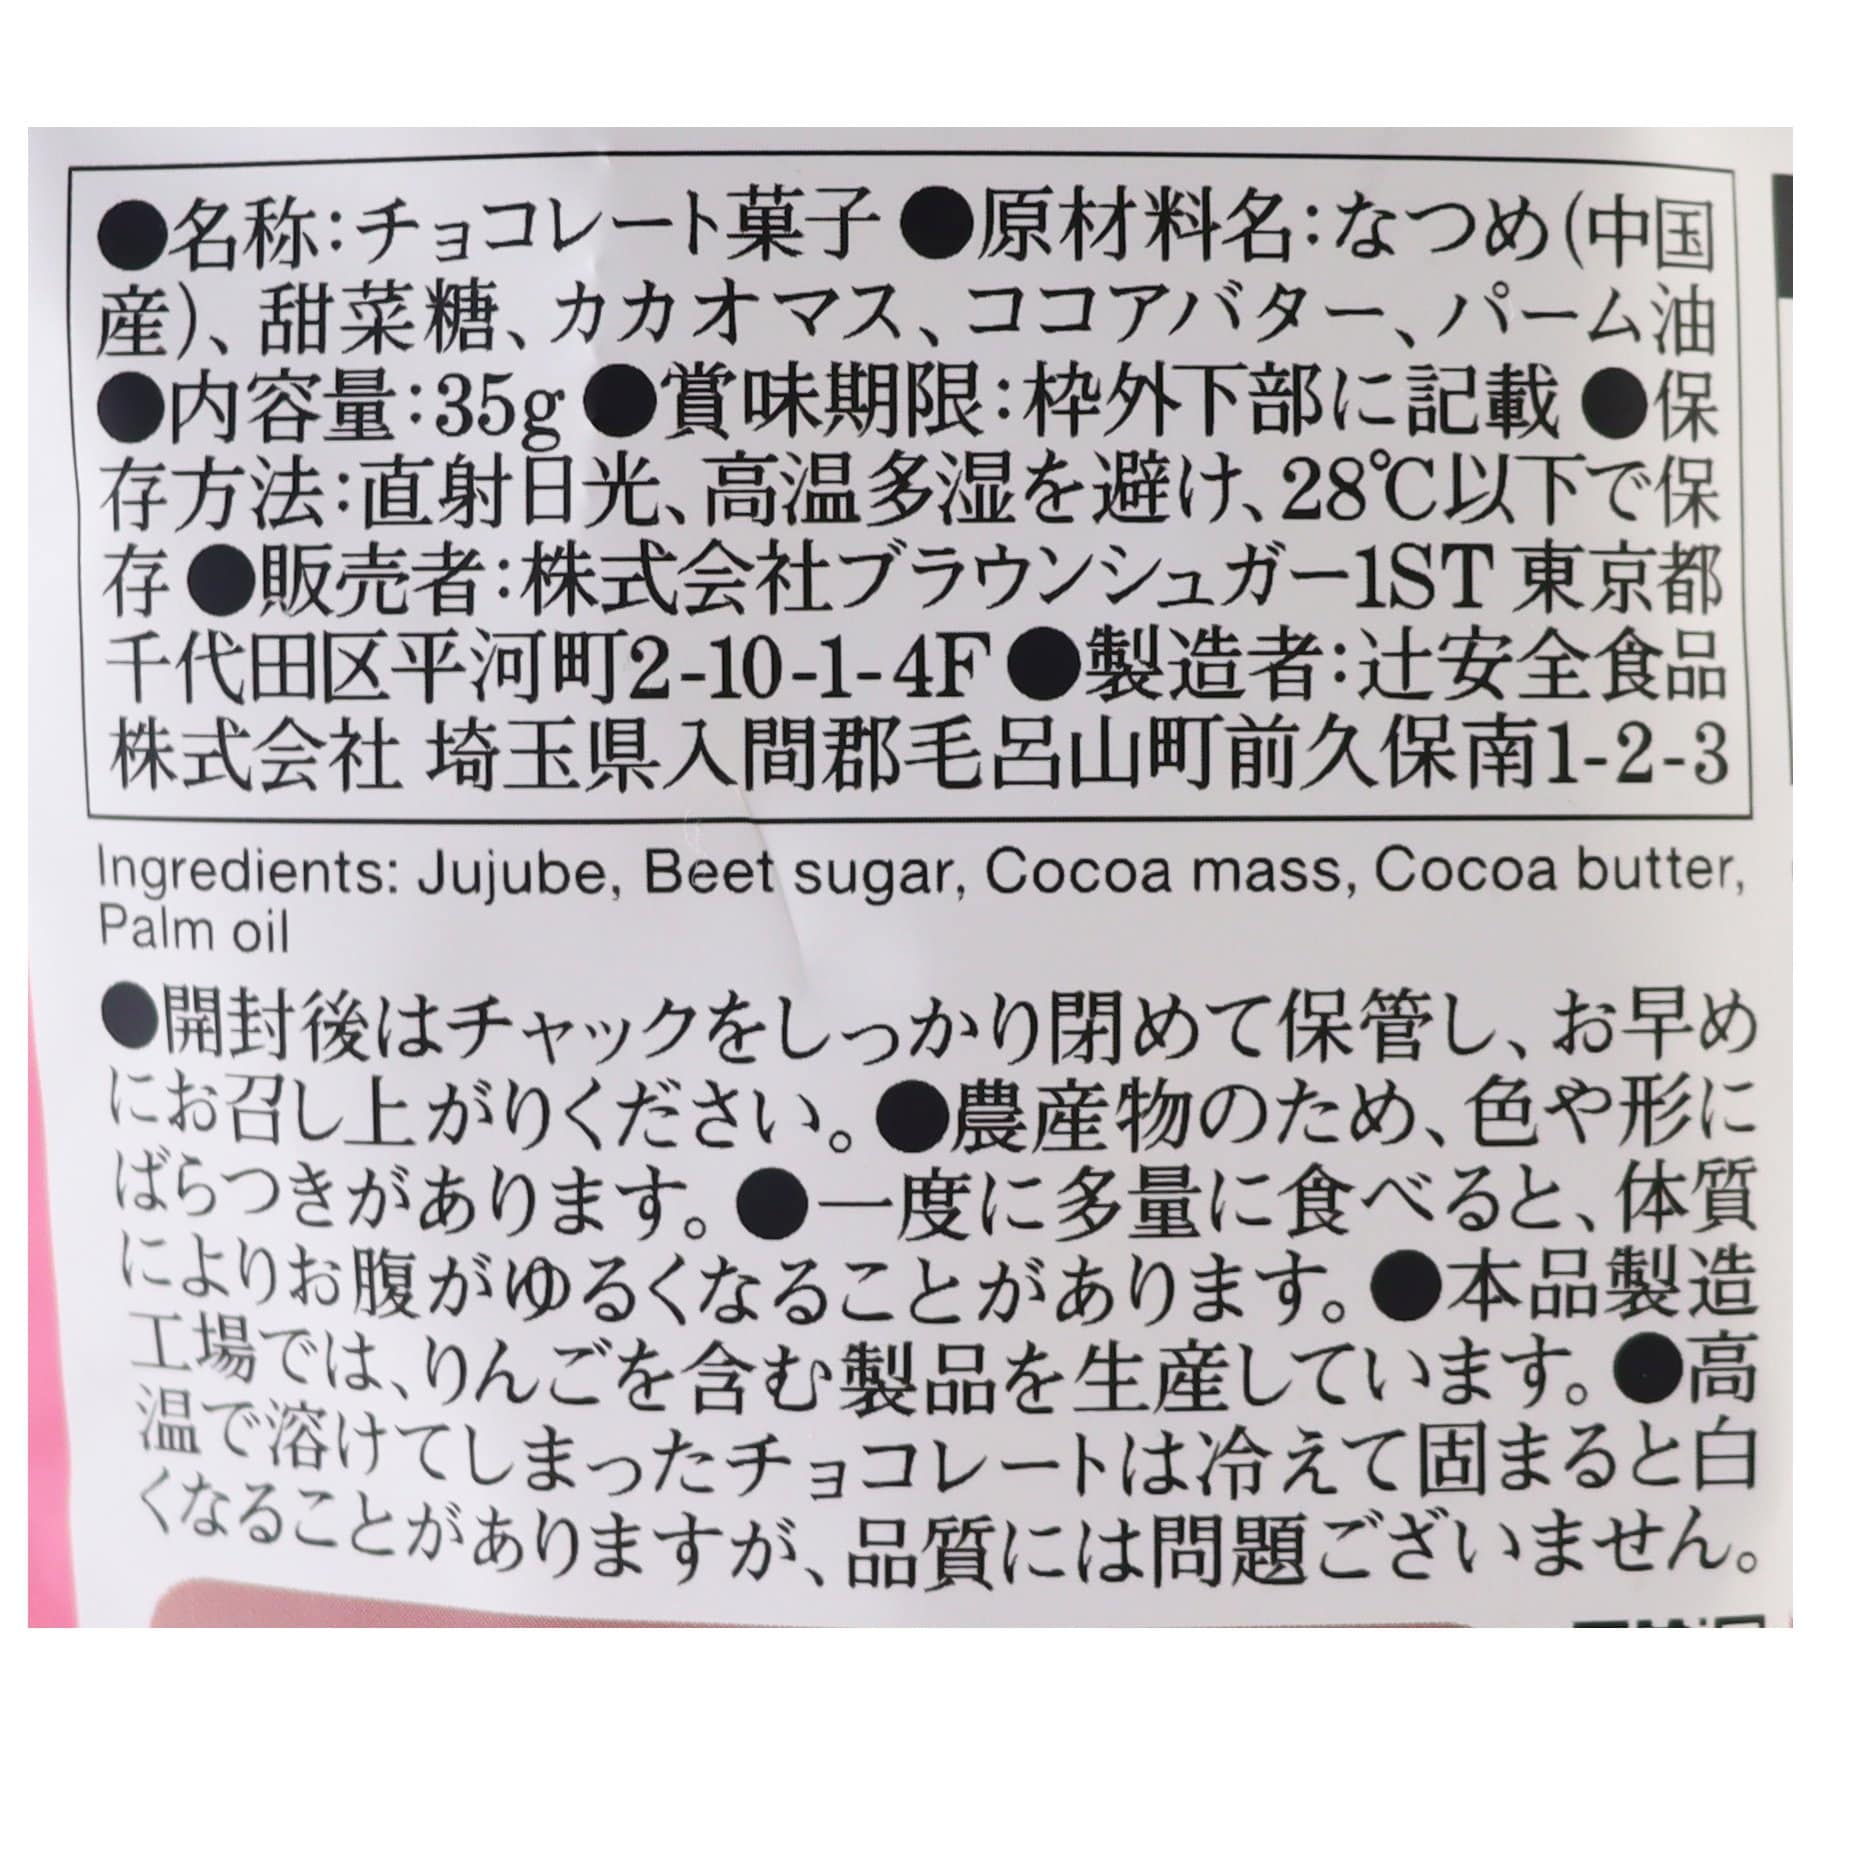 ●名称:チョコレート菓子 ●原材料名:なつめ(中国
産)、甜菜糖、カカオマス、ココアバター、パーム油
●内容量:35g ●賞味期限:枠外下部に記載 ●保
存方法:直射日光、高温多湿を避け、28℃以下で保
存 ●販売者:株式会社ブラウンシュガー1ST 東京都
千代田区平河町2-10-1-4F ●製造者:辻安全食品
株式会社 埼玉県入間郡毛呂山町前久保南1-2-3
Ingredients: Jujube, Beet sugar, Cocoa mass, Cocoa butter,
Palm oil
●開封後はチャックをしっかり閉めて保管し、お早め
にお召し上がりください。●農産物のため、色や形に
ばらつきがあります。●一度に多量に食べると、体質
によりお腹がゆるくなることがあります。●本品製造
工場では、りんごを含む製品を生産しています。●高
温で溶けてしまったチョコレートは冷えて固まると白
くなることがありますが、品質には問題ございません。